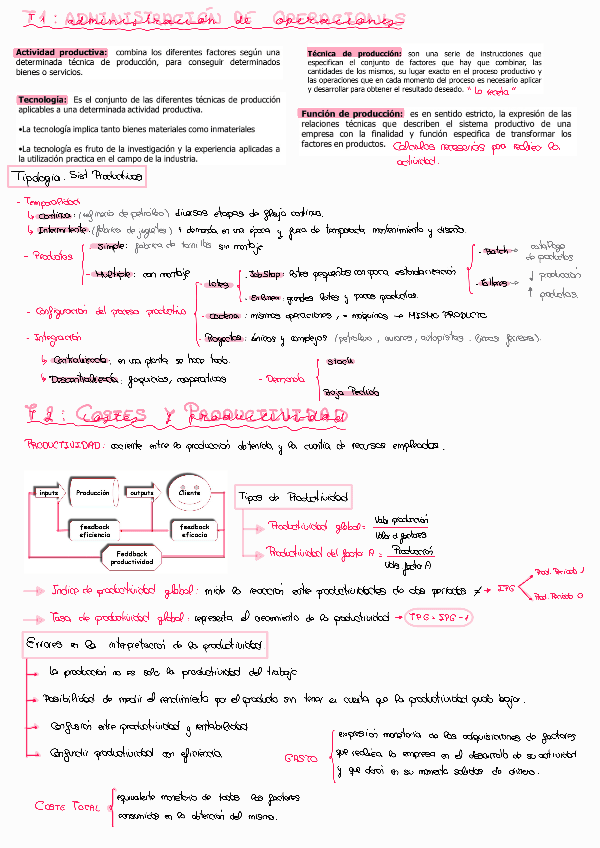 T1: ADMINISTRACIÓN DE OPERACIONES
Actividad productiva: combina los diferentes factores según una
determinada técnica de producción, para conseguir determinados
bienes o servicios.
Tecnología: Es el conjunto de las diferentes técnicas de producción
aplicables a una determinada actividad productiva.
•La tecnología implica tanto bienes materiales como inmateriales
•La tecnología es fruto de la investigación y la experiencia aplicadas a
la utilización practica en el campo de la industria.
Técnica de producción: son una serie de instrucciones que
especifican el conjunto de factores que hay que combinar, las
cantidades de los mismos, su lugar exacto en el proceso productivo y
las operaciones que en cada momento del proceso es necesario aplicar
y desarrollar para obtener el resultado deseado. "La receta"
Función de producción: es en sentido estricto, la expresión de las
relaciones técnicas que describen el sistema productivo de una
empresa con la finalidad y función especifica de transformar los
factores en productos. Cálculos necesarios para realizar la
actividad.
Tipología. Sist Productivos
- Temporalidad
↳ Continua: (refinería de petróleo) diversas etapas de flujo continuo.
↳ Intermitente: (fábrica de juguetes) ↑ demanda en una época y fuera de temporada, mantenimiento y diseño.
- Productos
- Simple: fabrica de tornillos sin montaje
- Multiple: con montaje
- Configuración del proceso productivo
- Lotes
- JobShop: lotes pequeños con poca estandarización
- Batch → catálogo de productos
- Talleres → ↓ producción
↑ productos.
- En linea: grandes lotes y pocos productos.
- Cadena: mismas operaciones, = maquinas → MISMO PRODUCTO
- Proyectos: únicos y complejos (petrolero, aviones, autopistas, líneas férreas).
- Integración
↳ Centralizada: en una planta se hace todo.
↳ Descentralizada: franquicias, cooperativas
- Demanda
Stock
Bajo Pedido
T2: COSTES Y PRODUCTIVIDAD
PRODUCTIVIDAD: cociente entre la producción obtenida y la cuantía de recursos empleados.
inputs
Producción
outputs
Cliente
feedback
eficiencia
feedback
eficacia
Feddback
productividad
Tipos de Productividad
Productividad global = Valor producción
Valor d factores
Productividad del factor A = Producción
Valor factor A
Indice de productividad global: mide la relación entre productividades de dos periodos ≠ → IPG
Prod. Periodo 1
Prod. Periodo 0
Tasa de productividad global: representa el crecimiento de la productividad → TPG = IPG - 1
Errores en la interpretación de la productividad
La producción no es solo la productividad del trabajo
Posibilidad de medir el rendimiento por el producto sin tener en cuenta que la productividad puede bajar.
Confusión entre productividad y rentabilidad
Confundir productividad con eficiencia.
GASTO
expresión monetaria de las adquisiciones de factores
que realiza la empresa en el desarrollo de su actividad
y que darán en su momento salidas de dinero.
COSTE TOTAL
equivalente monetario de todos los factores
consumidos en la obtención del mismo.